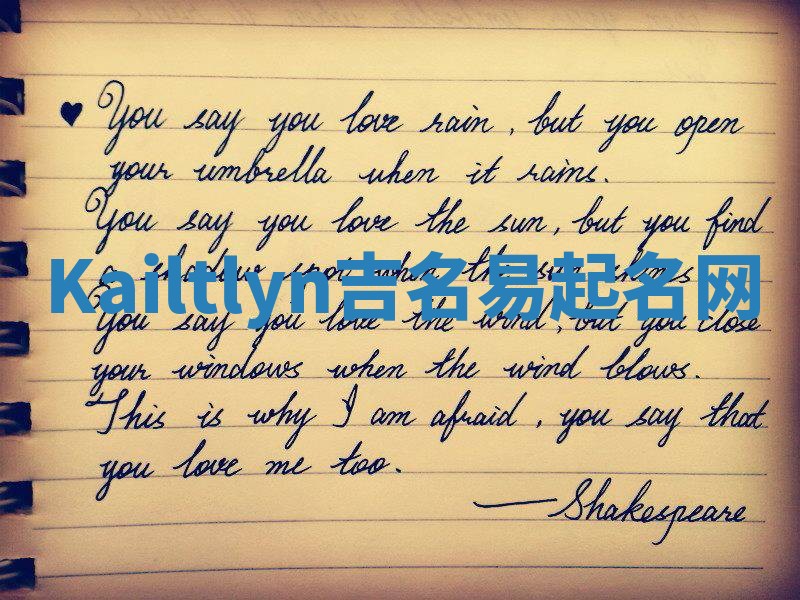 ♥ You say you love rain, but you open
your umbrella when it rains.
You say you love the sun, but you find
a shadow spot when the sun shines
Kailtlyn吉名易起名网
You say you love the wind, but you close
your windows when the wind blows.
This is why I am afraid, you say that
you love me too.
—Shakespeare